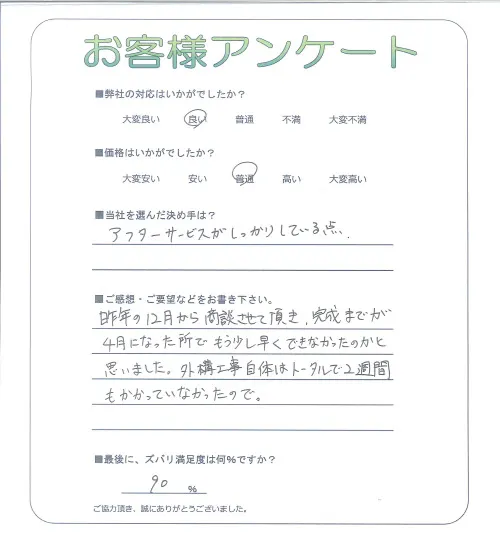 お客様アンケート
■弊社の対応はいかがでしたか？
大変良い 良い 普通 不満 大変不満
■価格はいかがでしたか？
大変安い 安い 普通 高い 大変高い
■当社を選んだ決め手は？
アフターサービスがしっかりしている点.
■ご感想・ご要望などをお書き下さい。
昨年の12月から商談させて頂き、完成までが
4月になった所でもう少し早くできなかったのかと
思いました。外構工事自体はトータルで2週間
もかかっていなかったので。
■最後に、ズバリ満足度は何%ですか？
90 %
ご協力頂き、誠にありがとうございました。